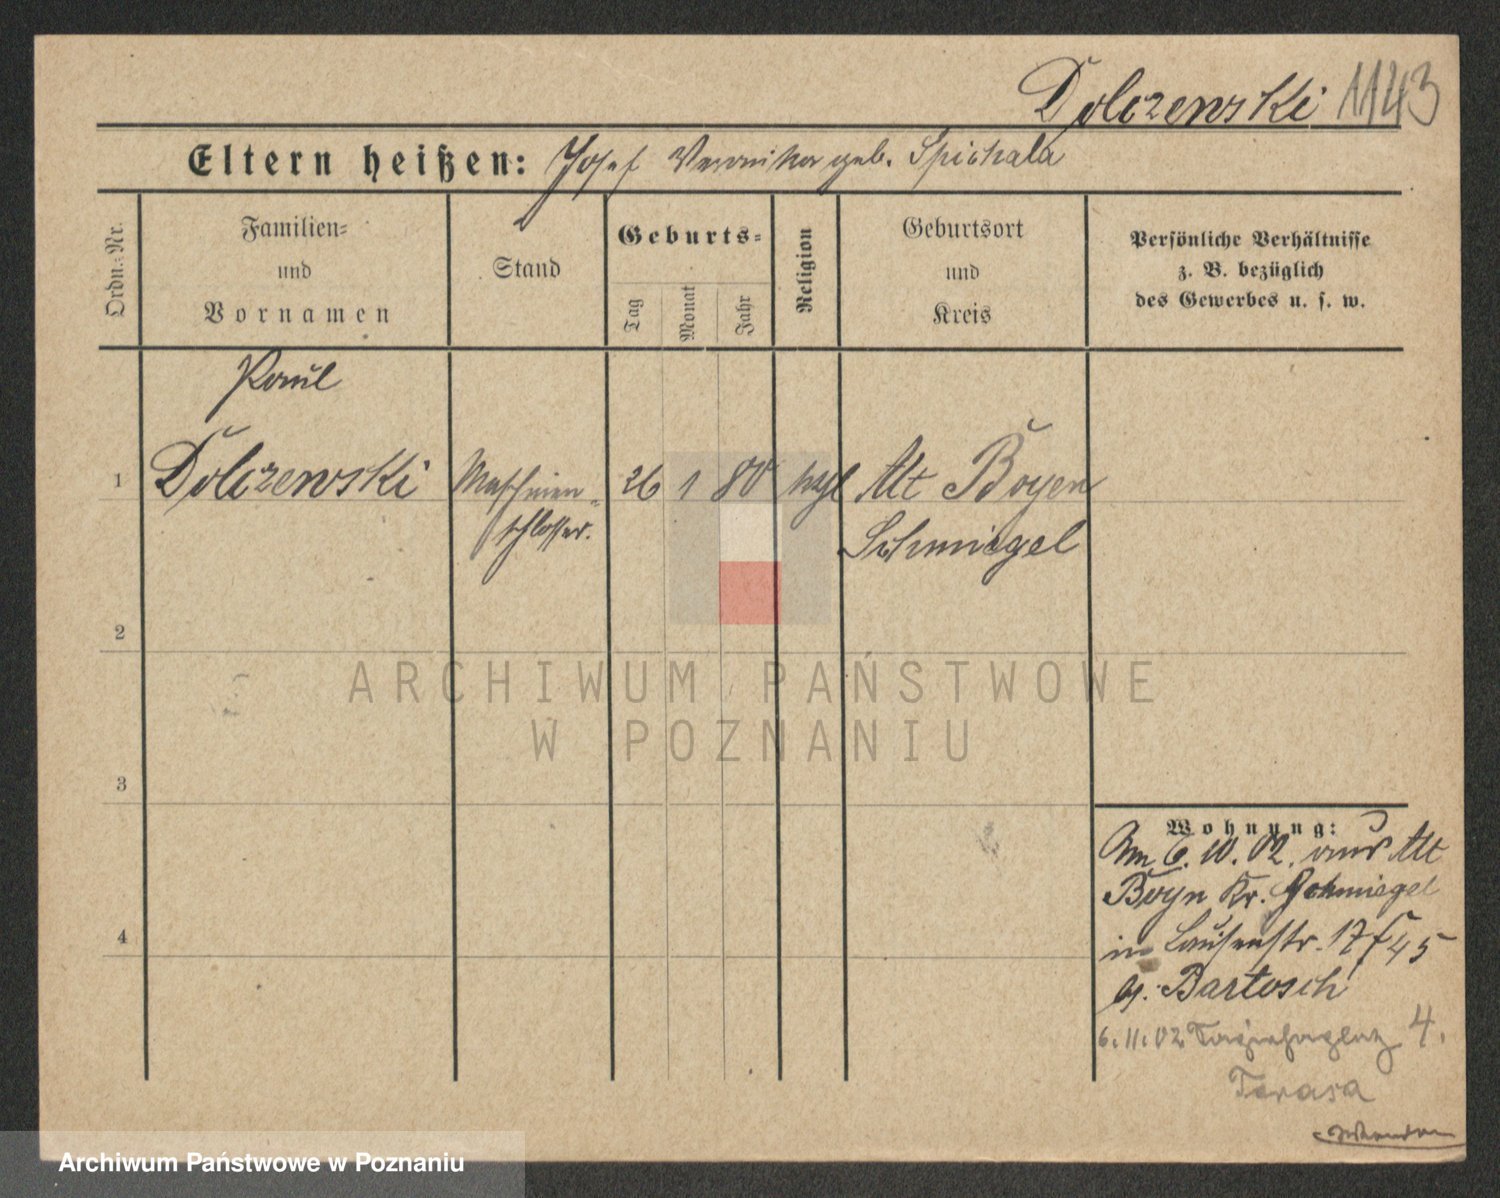 Dolczewski 1143
Eltern heißen: Josef Veronika geb. Spichala
Ordn.-Nr.
Familien-
und
Vornamen
Stand
Geburts-
Tag
Monat
Jahr
Religion
Geburtsort
und
Kreis
Persönliche Verhältnisse
z. B. bezüglich
des Gewerbes u. s. w.
Paul
1 Dolczewski Maschinen- 26 1 80 kgl Alt Boyen
schlosser. Schmiegel
2
3
4
Wohnung:
Am 6.10.02. aus Alt
Boyn Kr. Schmiegel
in Louisenstr. 17
b. Bartosch
6.11.02 4.
Terasa
ARCHIWUM PAŃSTWOWE
W POZNANIU
Archiwum Państwowe w Poznaniu